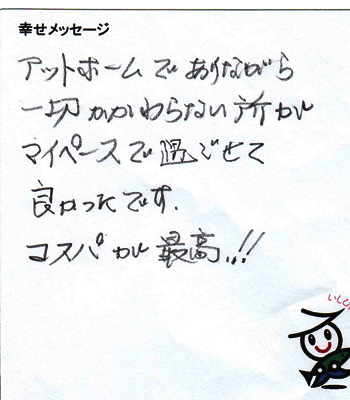 幸せメッセージ
アットホームでありながら
一切かかわらない所が
マイペースで過ごせて
良かったです.
コスパが最高..!!